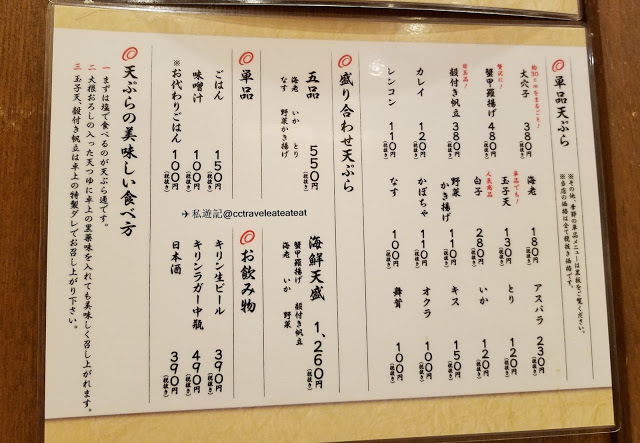 単品天ぷら
※その他、季節の単品メニューは黒板をご覧ください。
※当店の価格は全て税抜き価格です。
約30cmをまるごと！
大穴子 380円(税抜き)
贅沢に！
蟹甲羅揚げ 480円(税抜き)
殻付き帆立 380円(税抜き)
カレイ 120円(税抜き)
レンコン 110円(税抜き)
海老 180円(税抜き)
単品でも！
玉子天 130円(税抜き)
人気商品
白子 280円(税抜き)
野菜かき揚げ 110円(税抜き)
かぼちゃ 110円(税抜き)
なす 100円(税抜き)
アスパラ 230円(税抜き)
とり 120円(税抜き)
いか 120円(税抜き)
キス 150円(税抜き)
オクラ 100円(税抜き)
舞茸 100円(税抜き)
盛り合わせ天ぷら
五品 550円(税抜き)
海老 いか とり
なす 野菜かき揚げ
海鮮天盛 1,260円(税抜き)
蟹甲羅揚げ 殻付き帆立
海老 いか 野菜
単品
ごはん 150円(税抜き)
味噌汁 100円(税抜き)
※お代わりごはん 100円(税抜き)
お飲み物
キリン生ビール 390円(税抜き)
キリンラガー中瓶 490円(税抜き)
日本酒 390円(税抜き)
天ぷらの美味しい食べ方
一 まずは塩で食べるのが天ぷら通です。
二 大根おろしの入った天つゆに卓上の黒薬味を入れても美味しく召し上がれます。
三 玉子天、殻付き帆立は卓上の特製ダレでお召し上がり下さい。
✈私遊記@cctraveleateateat